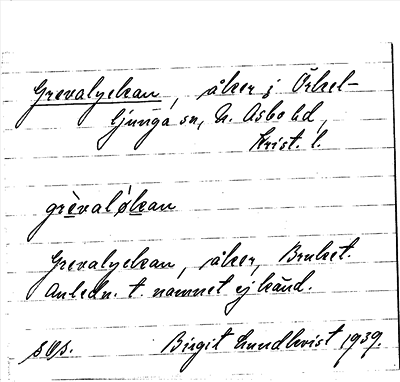 Grevalyckan, åker i Örkel-
ljunga sn, N. Åsbo hd,
Krist. l.
grèvaløkan
Grevalyckan, åker, Bruket.
Anledn. t. namnet ej känd.
sOs. Birgit Lundkvist 1939.